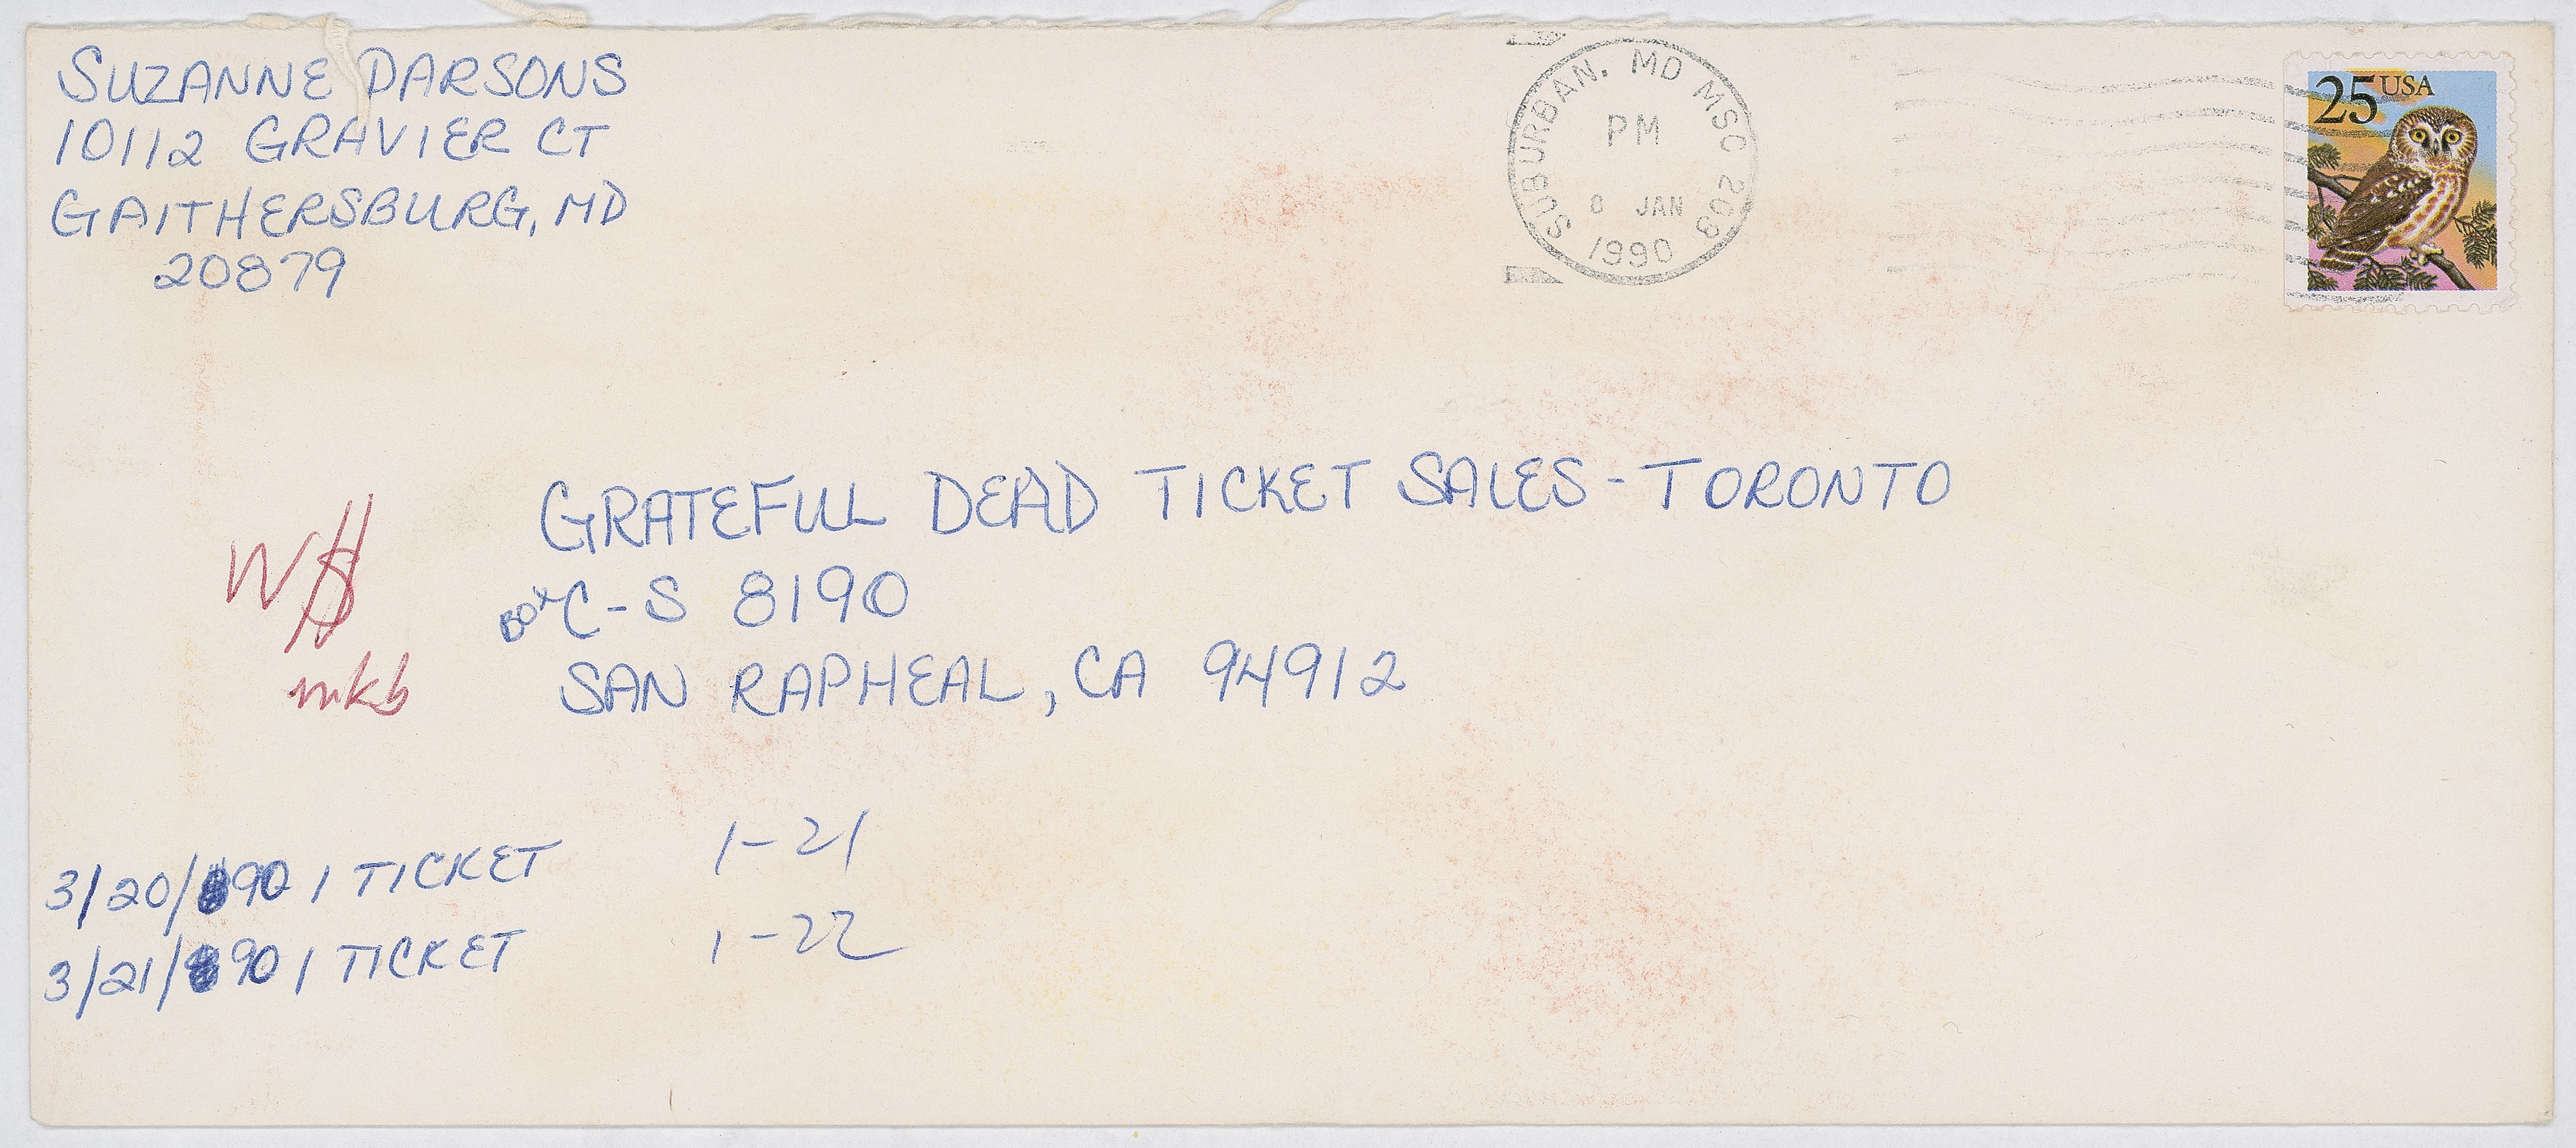 SUZANNE PARSONS
10112 GRAVIER CT
GAITHERSBURG, MD
20879
SUBURBAN, MD MSC 203
PM
8 JAN
1990
25 USA
GRATEFUL DEAD TICKET SALES - TORONTO
BOX C-S 8190
SAN RAPHEAL, CA 94912
W$
mkb
3/20/90 1 TICKET 1-21
3/21/90 1 TICKET 1-22